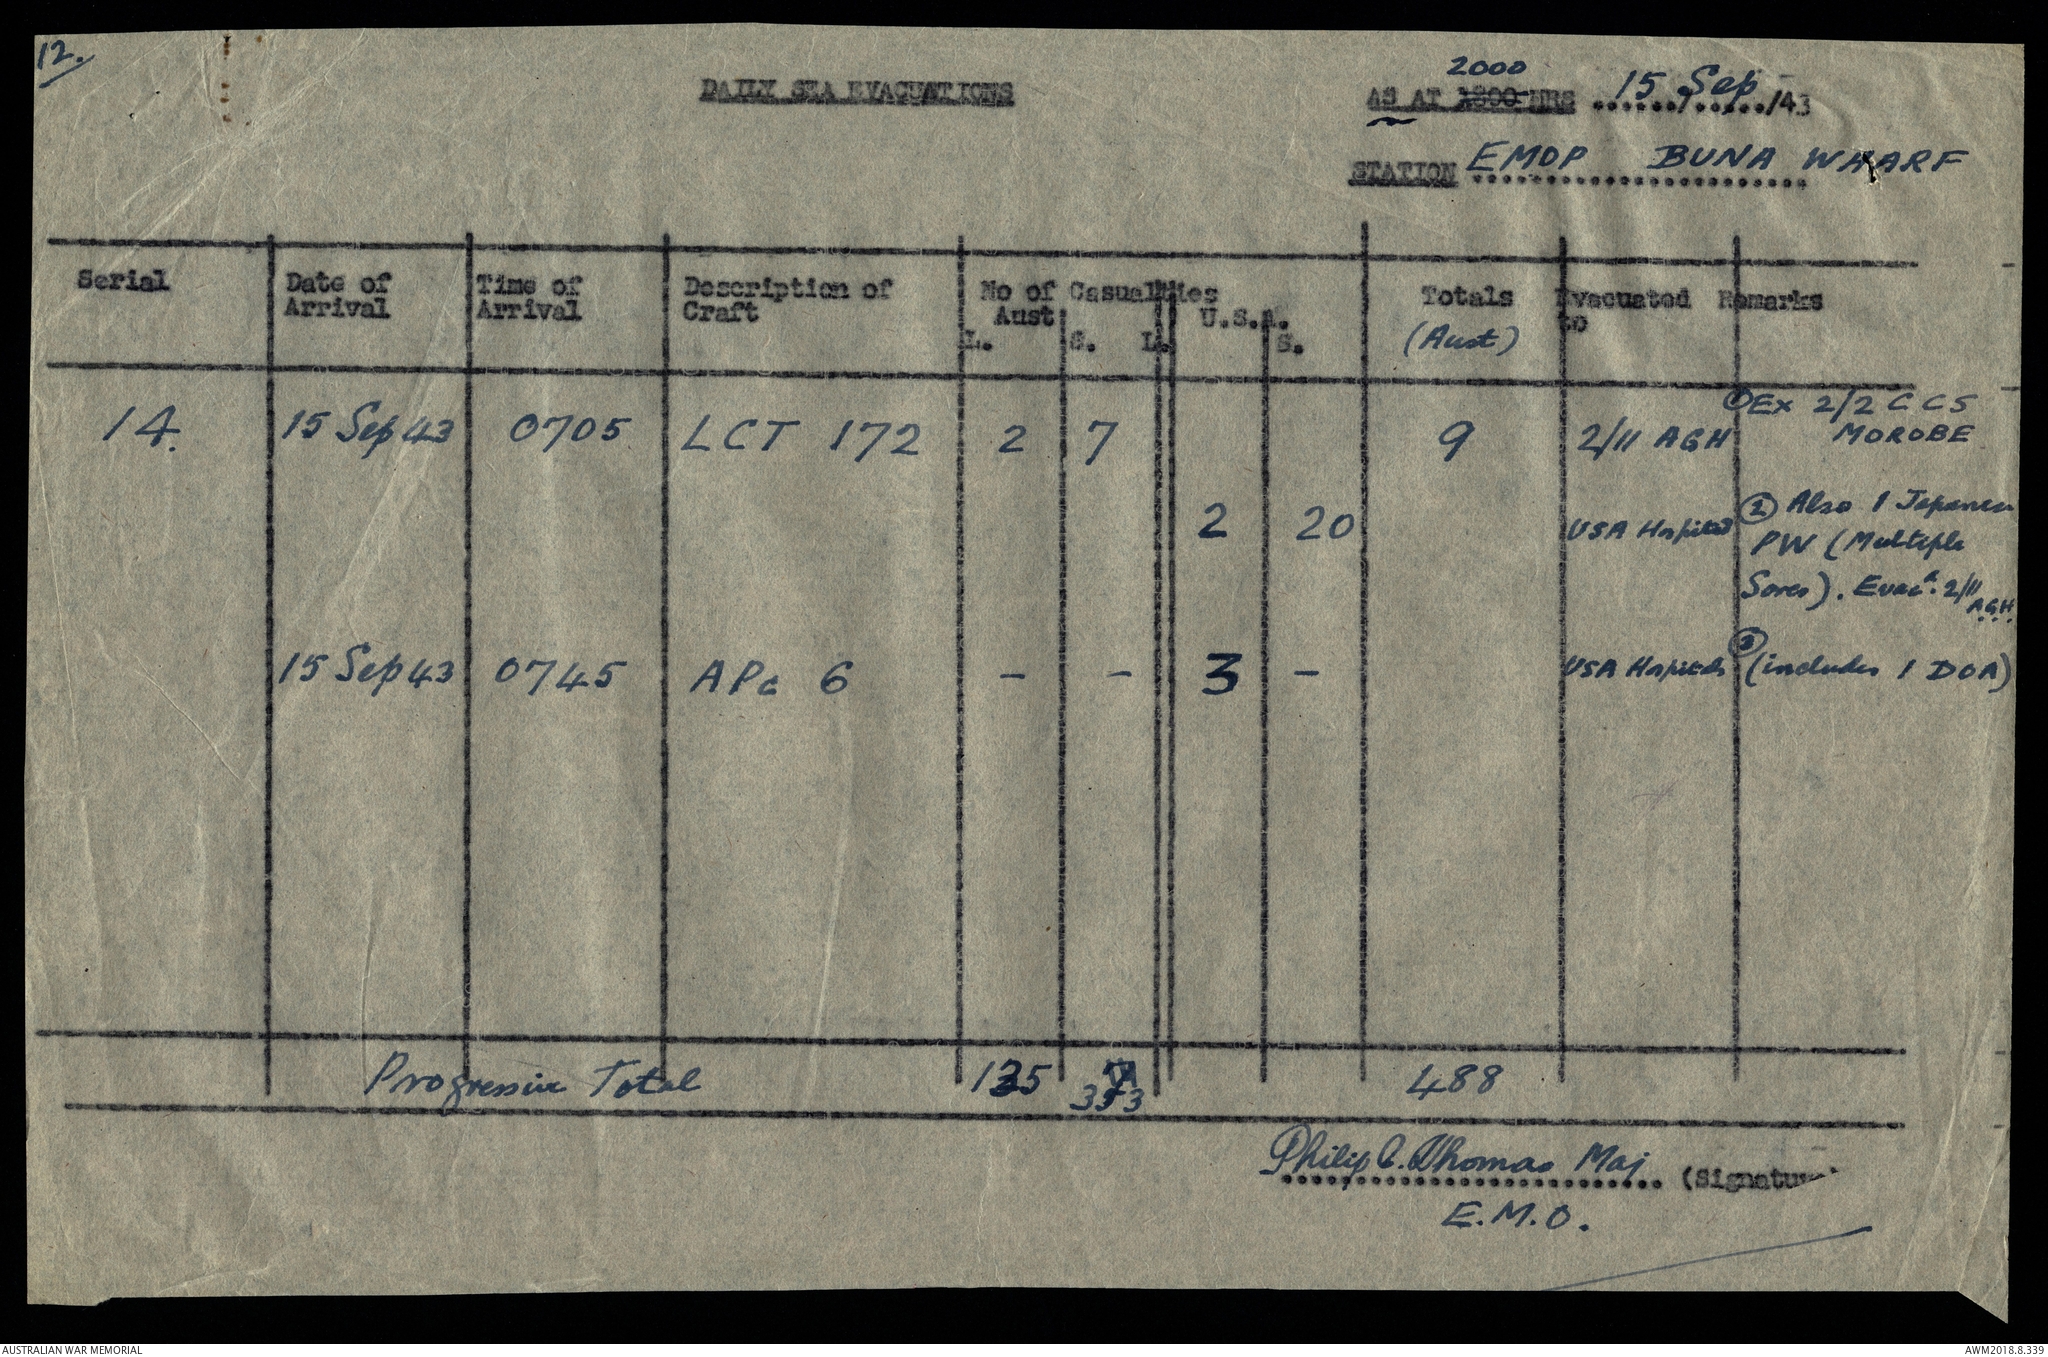 12.
DAILY SEA EVACUATIONS
2000
AS AT 1800 HRS 15 Sep /43
STATION EMDP BUNA WHARF
Serial Date of Arrival Time of Arrival Description of Craft No of Casualties Aust L. S. U.S.A. L. S. Totals (Aust) Evacuated to Remarks
14. 15 Sep 43 0705 LCT 172 2 7 9 2/11 AGH ① Ex 2/2 CCS
MOROBE
2 20 USA Hospital ② Also 1 Japanese
PW (Multiple
Sores). Evacd. 2/11
A.G.H.
15 Sep 43 0745 APc 6 - - 3 - USA Hospitals ③ (includes 1 DOA)
Progressive Total 135 353 488
Philip C. Thomas Maj (Signature)
E.M.O.
AUSTRALIAN WAR MEMORIAL
AWM2018.8.339